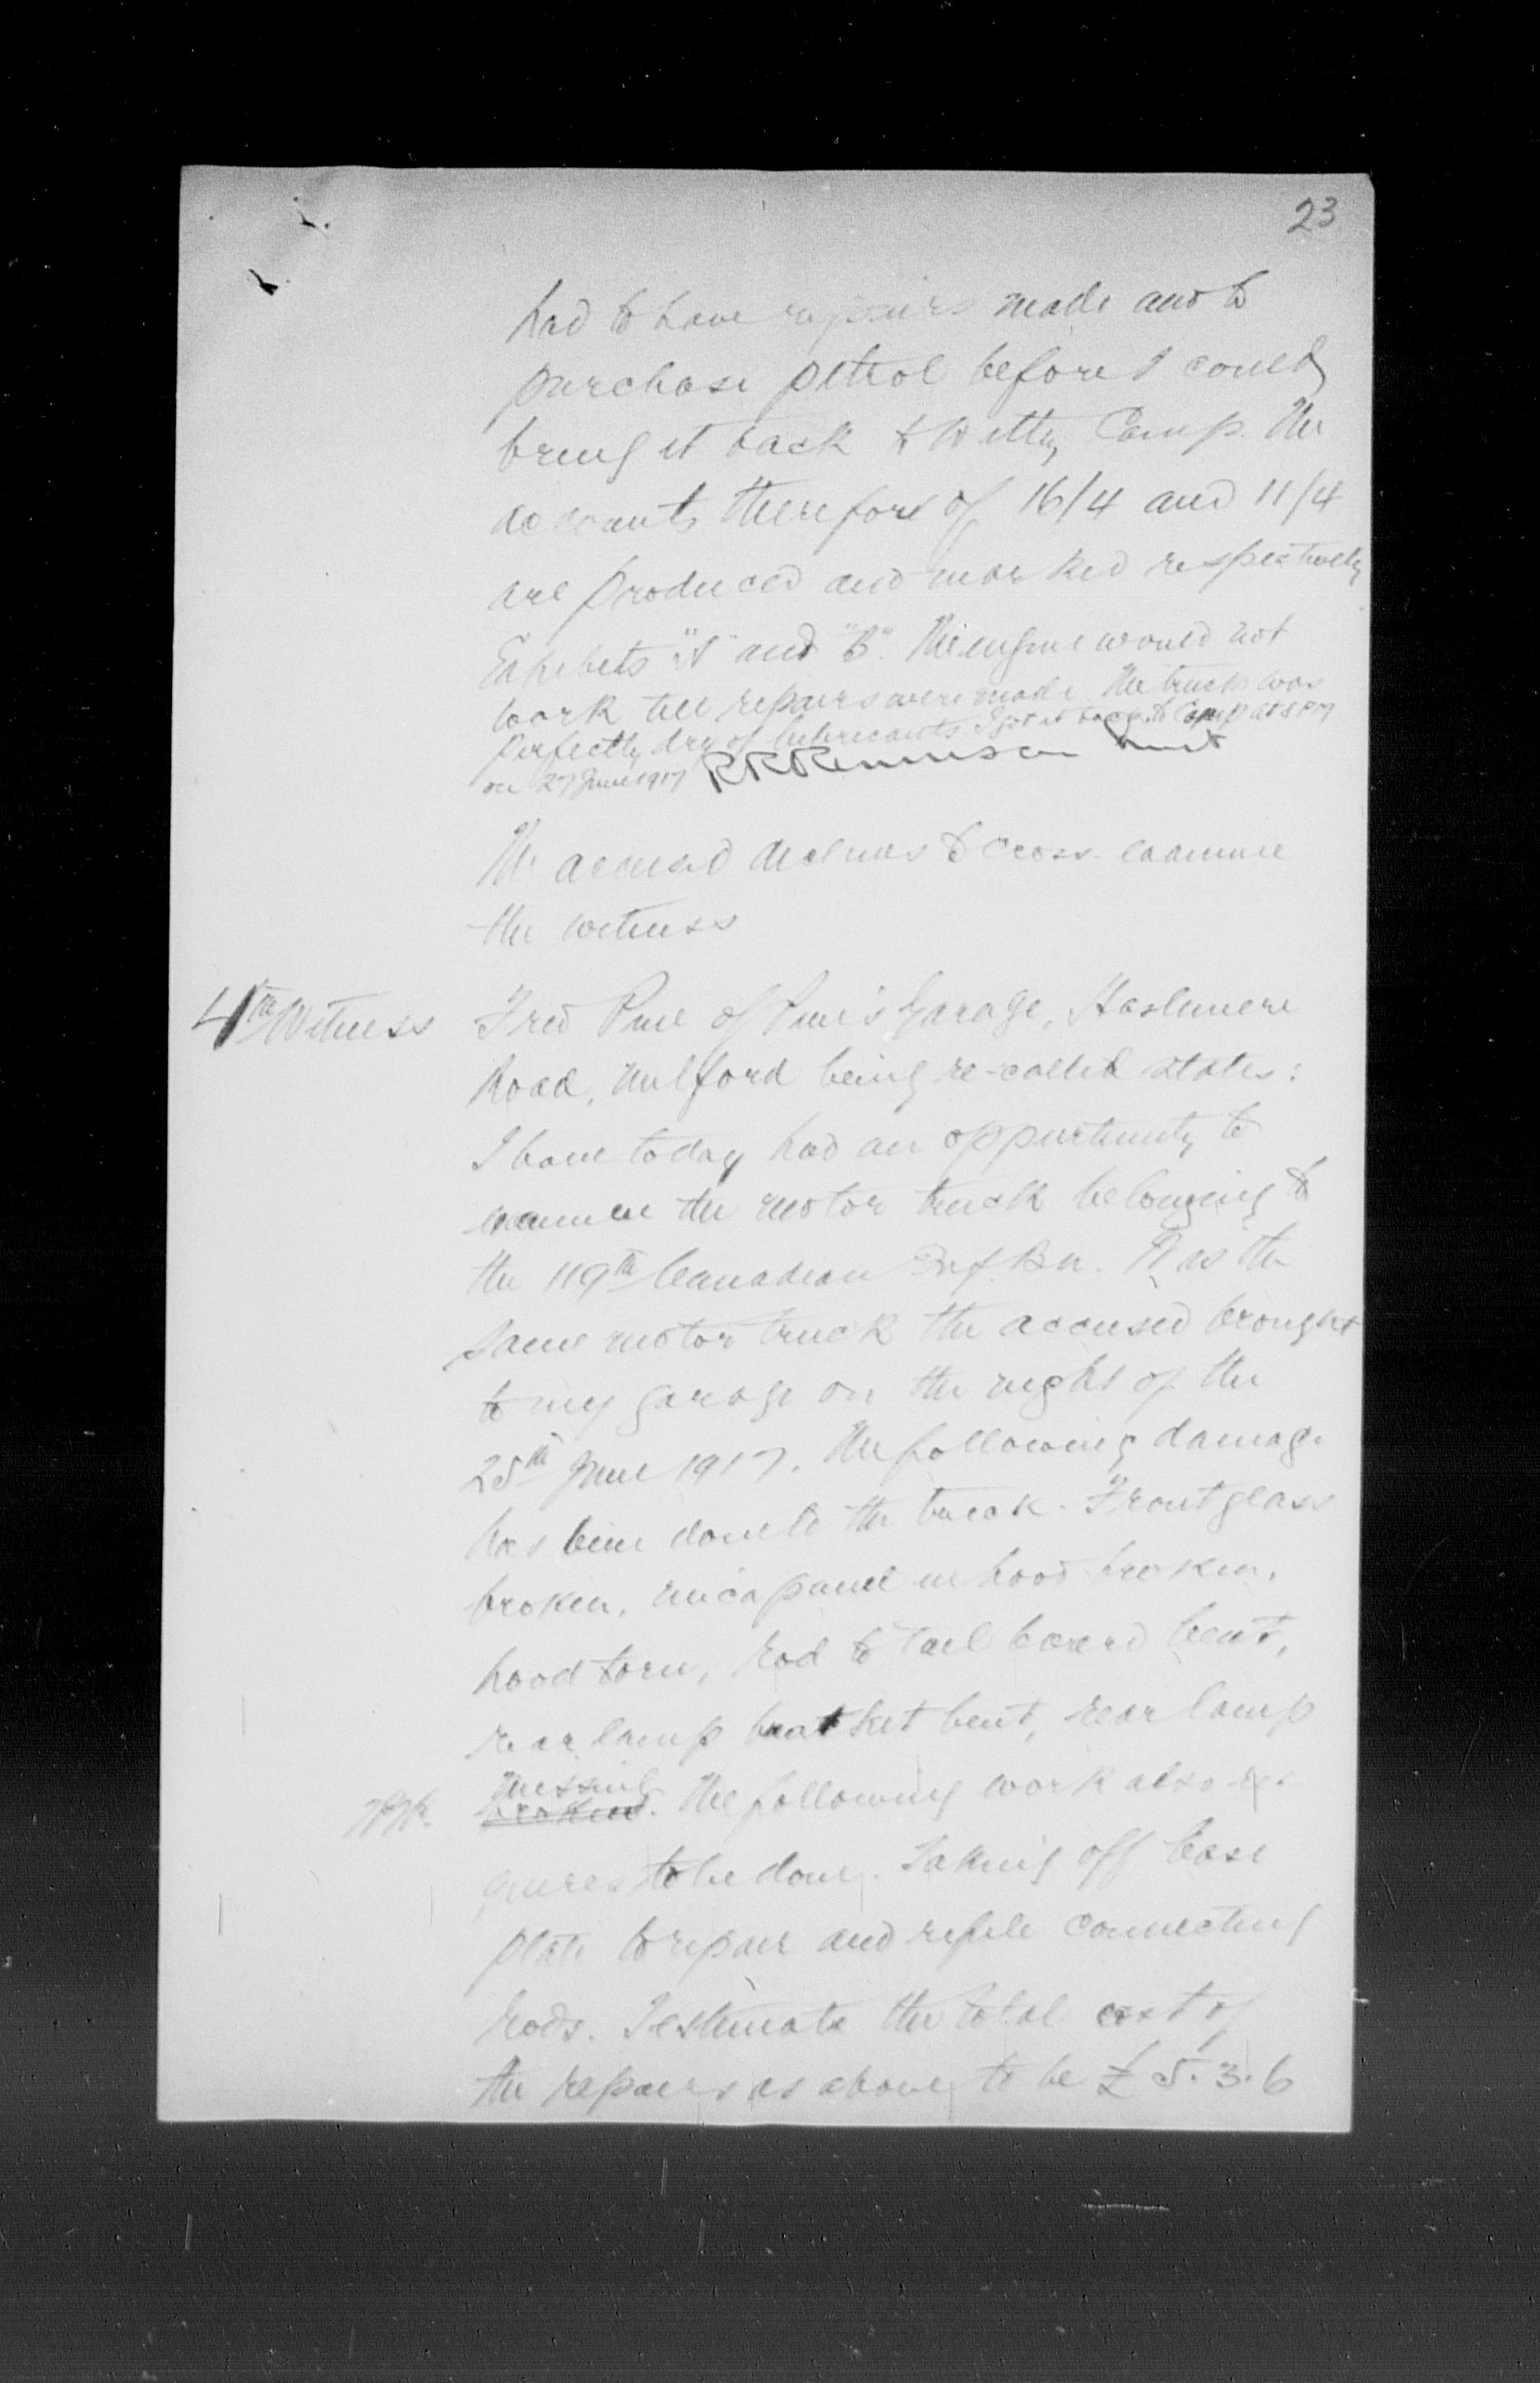 23
had to have repairs made and to
purchase petrol before I could
bring it back to Witley Camp. The
accounts therefore of 16/4 and 11/4
are produced and marked respectively
Exhibits "A" and "B". The engine would not
work till repairs were made. The truck was
perfectly dry of lubricants. I got it back to Camp at 8 PM
on 27 June 1917
The accused declines to cross-examine
the witness
4th Witness Fred Pine of Pine's Garage, Haslemere
Road, Milford being re-called states:
I have today had an opportunity to
examine the motor truck belonging to
the 119th Canadian Inf. Bn. It is the
same motor truck the accused brought
to my garage on the night of the
25th June 1917. The following damage
has been done to the truck. Front glass
broken, mica panel in hood broken,
hood torn, rod to tail board bent,
rear lamp bracket bent, rear lamp
missing
broken. The following work also re-
quires to be done. Taking off base
plate to repair and refile connecting
rods. I estimate the total cost of
the repairs as above to be £5.3.6